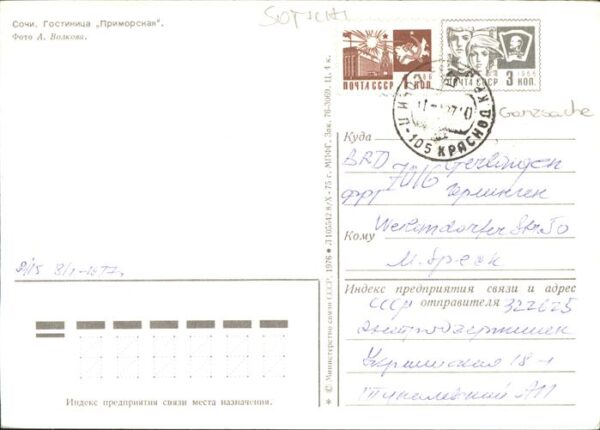 Сочи. Гостиница „Приморская".
Фото А. Волкова.
SOTSCHI
1966
ПОЧТА СССР 1 КОП.
1966
ПОЧТА СССР 3 КОП.
СОЧИ П-105 КРАСНОД. КР.
Ganzsache
Куда
BRD 7016 Gerlingen
ФРГ Герлинген
Str. 50
Кому
M.
Индекс предприятия связи и адрес
отправителя
СССР 322625
Днепродзержинск
18-1
АП
© Министерство связи СССР, 1976 • Л 105542 8/X-75 г. МПФГ. Зак. 76-3069. Ц. 4 к.
Индекс предприятия связи места назначения.